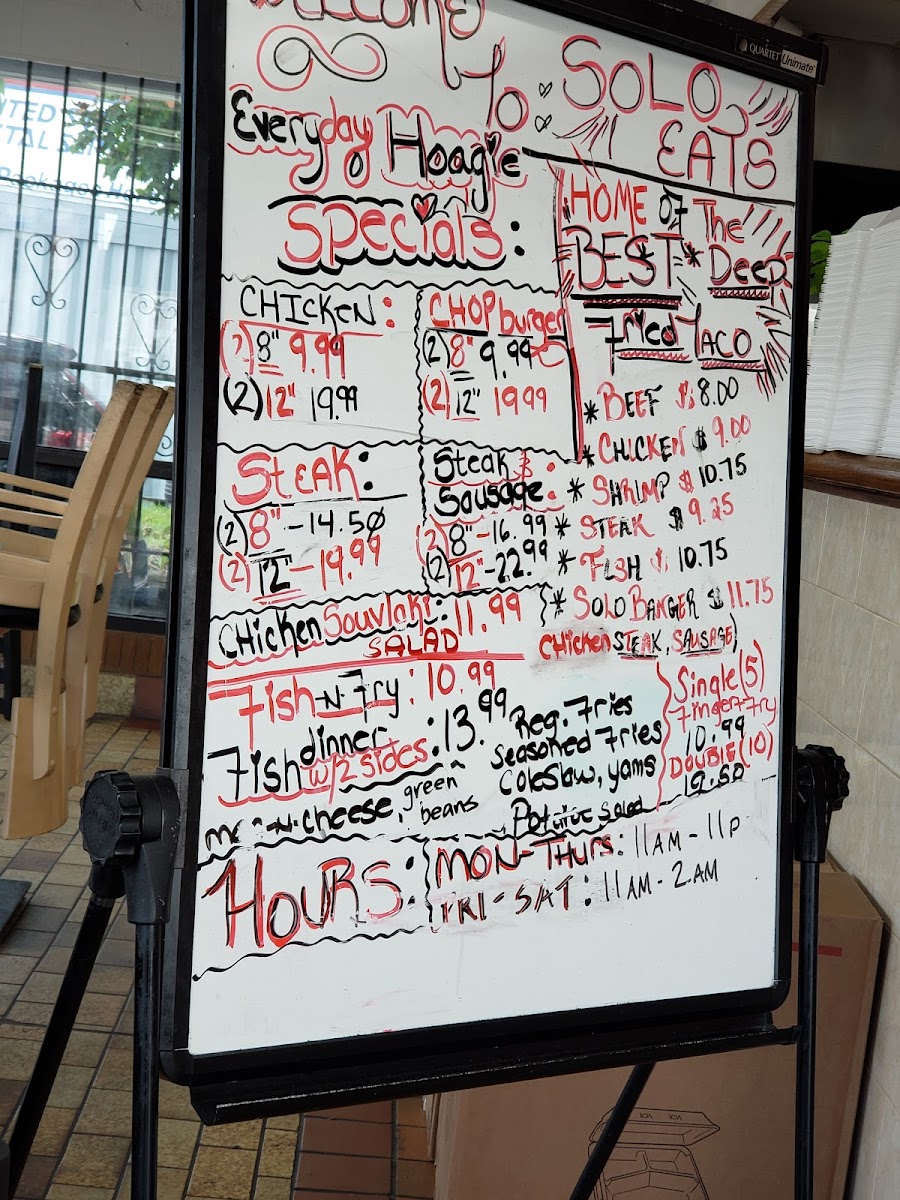 QUARTET Unimate
Welcome
To SOLO
EATS
Everyday Hoagie
Specials:
HOME of The
BEST Deep
Fried Taco
* BEEF $ 8.00
* CHICKEN $ 9.00
* SHRIMP $ 10.75
* STEAK $ 9.25
* FISH $ 10.75
* SOLO BANGER $ 11.75
Chicken STEAK, SAUSAGE)
CHICKEN:
(2) 8" 9.99
(2) 12" 19.99
CHOP burger
(2) 8" 9.99
(2) 12" 19.99
STEAK:
(2) 8" - 14.50
(2) 12" - 19.99
Steak &
Sausage:
(2) 8" - 16.99
(2) 12" - 22.99
CHicken Souvlaki: 11.99
SALAD
Fish -N- Fry: 10.99
Fish dinner: 13.99
w/2 sides
Reg. Fries
Seasoned Fries
Coleslaw, yams
-N- cheese, green
beans
Salad
Single (5)
Finger Fry
10.99
DOUBLE (10)
19.50
HOURS:
MON-THURS: 11AM - 11P
FRI-SAT: 11AM - 2AM